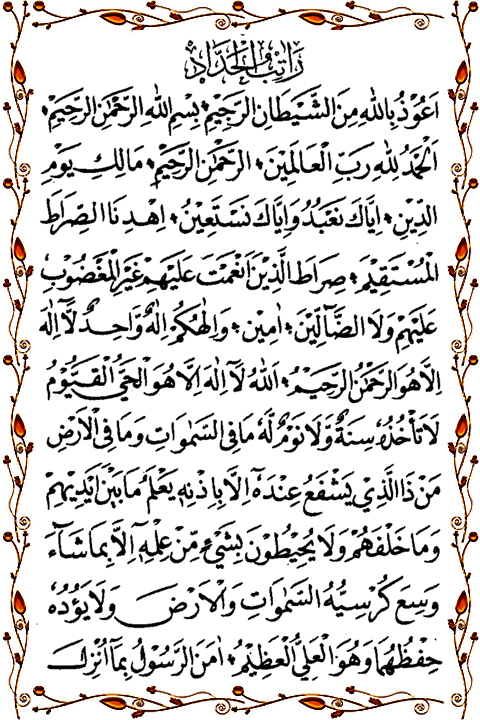 رَاتِبُ الْحَدَّادِ
اَعُوْذُ بِاللهِ مِنَ الشَّيْطَانِ الرَّجِيْمِ * بِسْمِ اللهِ الرَّحْمٰنِ الرَّحِيْمِ *
اَلْحَمْدُ لِلهِ رَبِّ الْعَالَمِيْنَ * الرَّحْمٰنِ الرَّحِيْمِ * مَالِكِ يَوْمِ
الدِّيْنِ * اِيَّاكَ نَعْبُدُ وَاِيَّاكَ نَسْتَعِيْنُ * اِهْدِنَا الصِّرَاطَ
الْمُسْتَقِيْمَ * صِرَاطَ الَّذِيْنَ اَنْعَمْتَ عَلَيْهِمْ غَيْرِ الْمَغْضُوْبِ
عَلَيْهِمْ وَلَا الضَّآلِّيْنَ * اٰمِيْن * وَاِلٰهُكُمْ اِلٰهٌ وَّاحِدٌ لَّآ اِلٰهَ
اِلَّا هُوَ الرَّحْمٰنُ الرَّحِيْمُ * اَللهُ لَآ اِلٰهَ اِلَّا هُوَ الْحَيُّ الْقَيُّوْمُ
لَا تَأْخُذُهٗ سِنَةٌ وَّلَا نَوْمٌ لَّهٗ مَا فِى السَّمٰوَاتِ وَمَا فِى الْاَرْضِ
مَنْ ذَا الَّذِيْ يَشْفَعُ عِنْدَهٗٓ اِلَّا بِاِذْنِهٖ يَعْلَمُ مَا بَيْنَ اَيْدِيْهِمْ
وَمَا خَلْفَهُمْ وَلَا يُحِيْطُوْنَ بِشَيْءٍ مِّنْ عِلْمِهٖٓ اِلَّا بِمَا شَآءَ
وَسِعَ كُرْسِيُّهُ السَّمٰوَاتِ وَالْاَرْضَ وَلَا يَؤُدُهٗ
حِفْظُهُمَا وَهُوَ الْعَلِيُّ الْعَظِيْمُ * اٰمَنَ الرَّسُوْلُ بِمَآ اُنْزِلَ